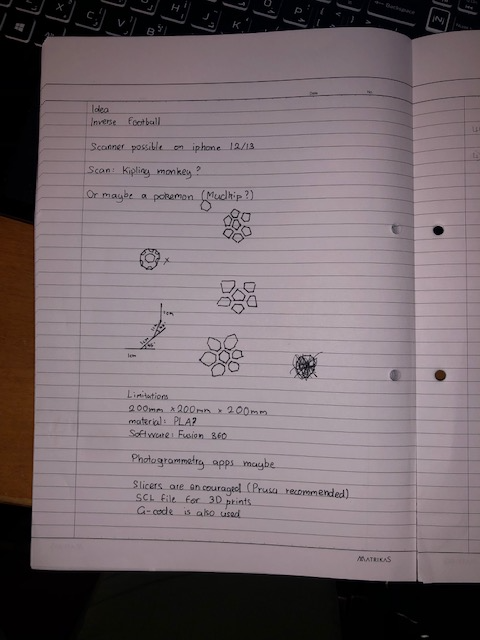 Idea
Inverse Football
Scanner possible on iphone 12/13
Scan: Kipling monkey?
Or maybe a pokemon (Mudkip?)
1cm
1cm
Limitations
200mm × 200mm × 200mm
material: PLA?
Software: Fusion 360
Photogrammetry apps maybe
Slicers are encouraged (Prusa recommended)
SCL file for 3D prints
G-code is also used
MATRIKAS